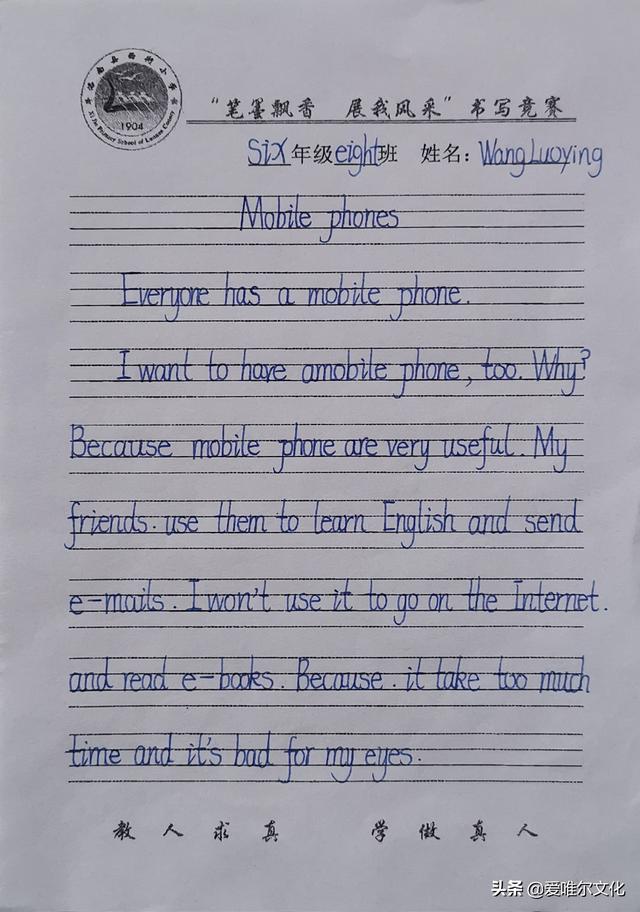 1904
"笔墨飘香 展我风采"书写竞赛
Six年级eight班 姓名：Wang Luoying
Mobile phones
Everyone has a mobile phone.
I want to have amobile phone, too. Why?
Because mobile phone are very useful. My
friends. use them to learn English and send
e-mails. I won't use it to go on the Internet.
and read e-books. Because. it take too much
time and it's bad for my eyes.
教人求真 学做真人
头条 @爱唯尔文化